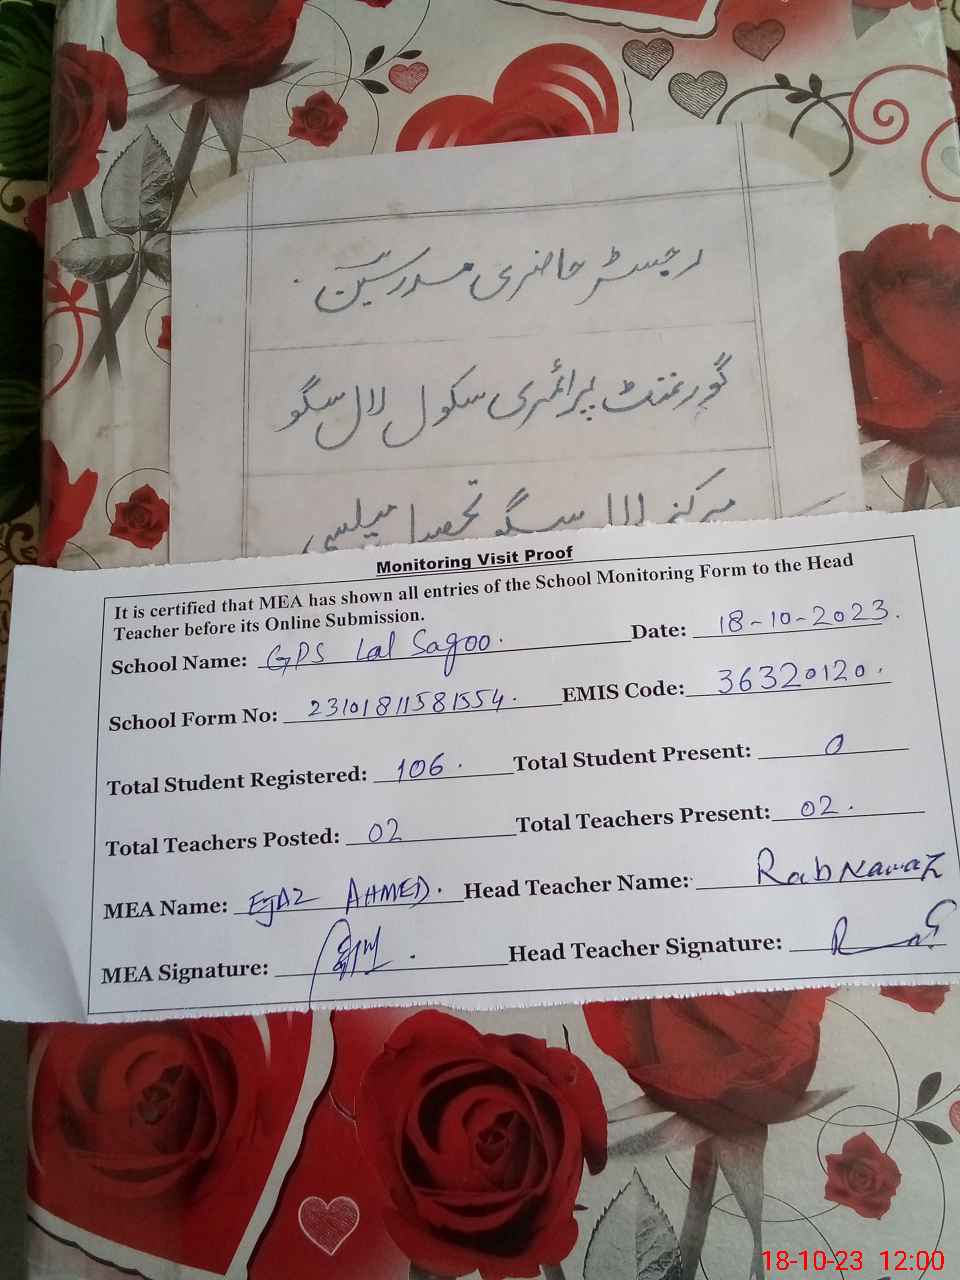 رجسٹر حاضری مدرسین
گورنمنٹ پرائمری سکول لال سگو
مرکز لال سگو تحصیل میلسی
Monitoring Visit Proof
It is certified that MEA has shown all entries of the School Monitoring Form to the Head
Teacher before its Online Submission.
School Name: GPS Lal Sagoo. Date: 18-10-2023.
School Form No: 23101811581554. EMIS Code: 36320120.
Total Student Registered: 106. Total Student Present: 0
Total Teachers Posted: 02 Total Teachers Present: 02.
MEA Name: EJAZ AHMED. Head Teacher Name: Rab Nawaz
MEA Signature: Head Teacher Signature:
18-10-23 12:00